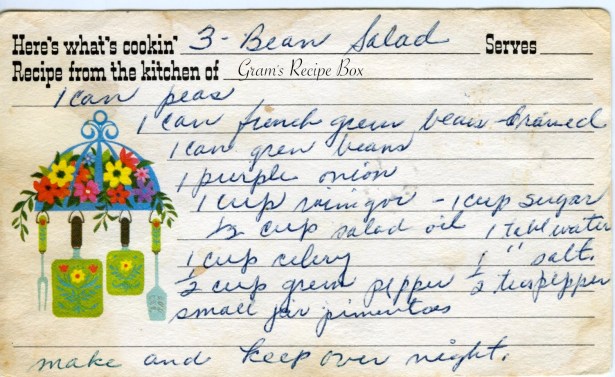 Here's what's cookin' 3-Bean Salad Serves
Recipe from the kitchen of Gram's Recipe Box
1 can peas
1 can french green beans - drained
1 can gren beans
1 purple onion
1 cup vinigor - 1 cup sugar
1/2 cup salad oil 1 tabl water
1 cup celery 1 " salt.
1/2 cup green pepper 1/2 tsp pepper
small jar pimentos
make and keep over night.